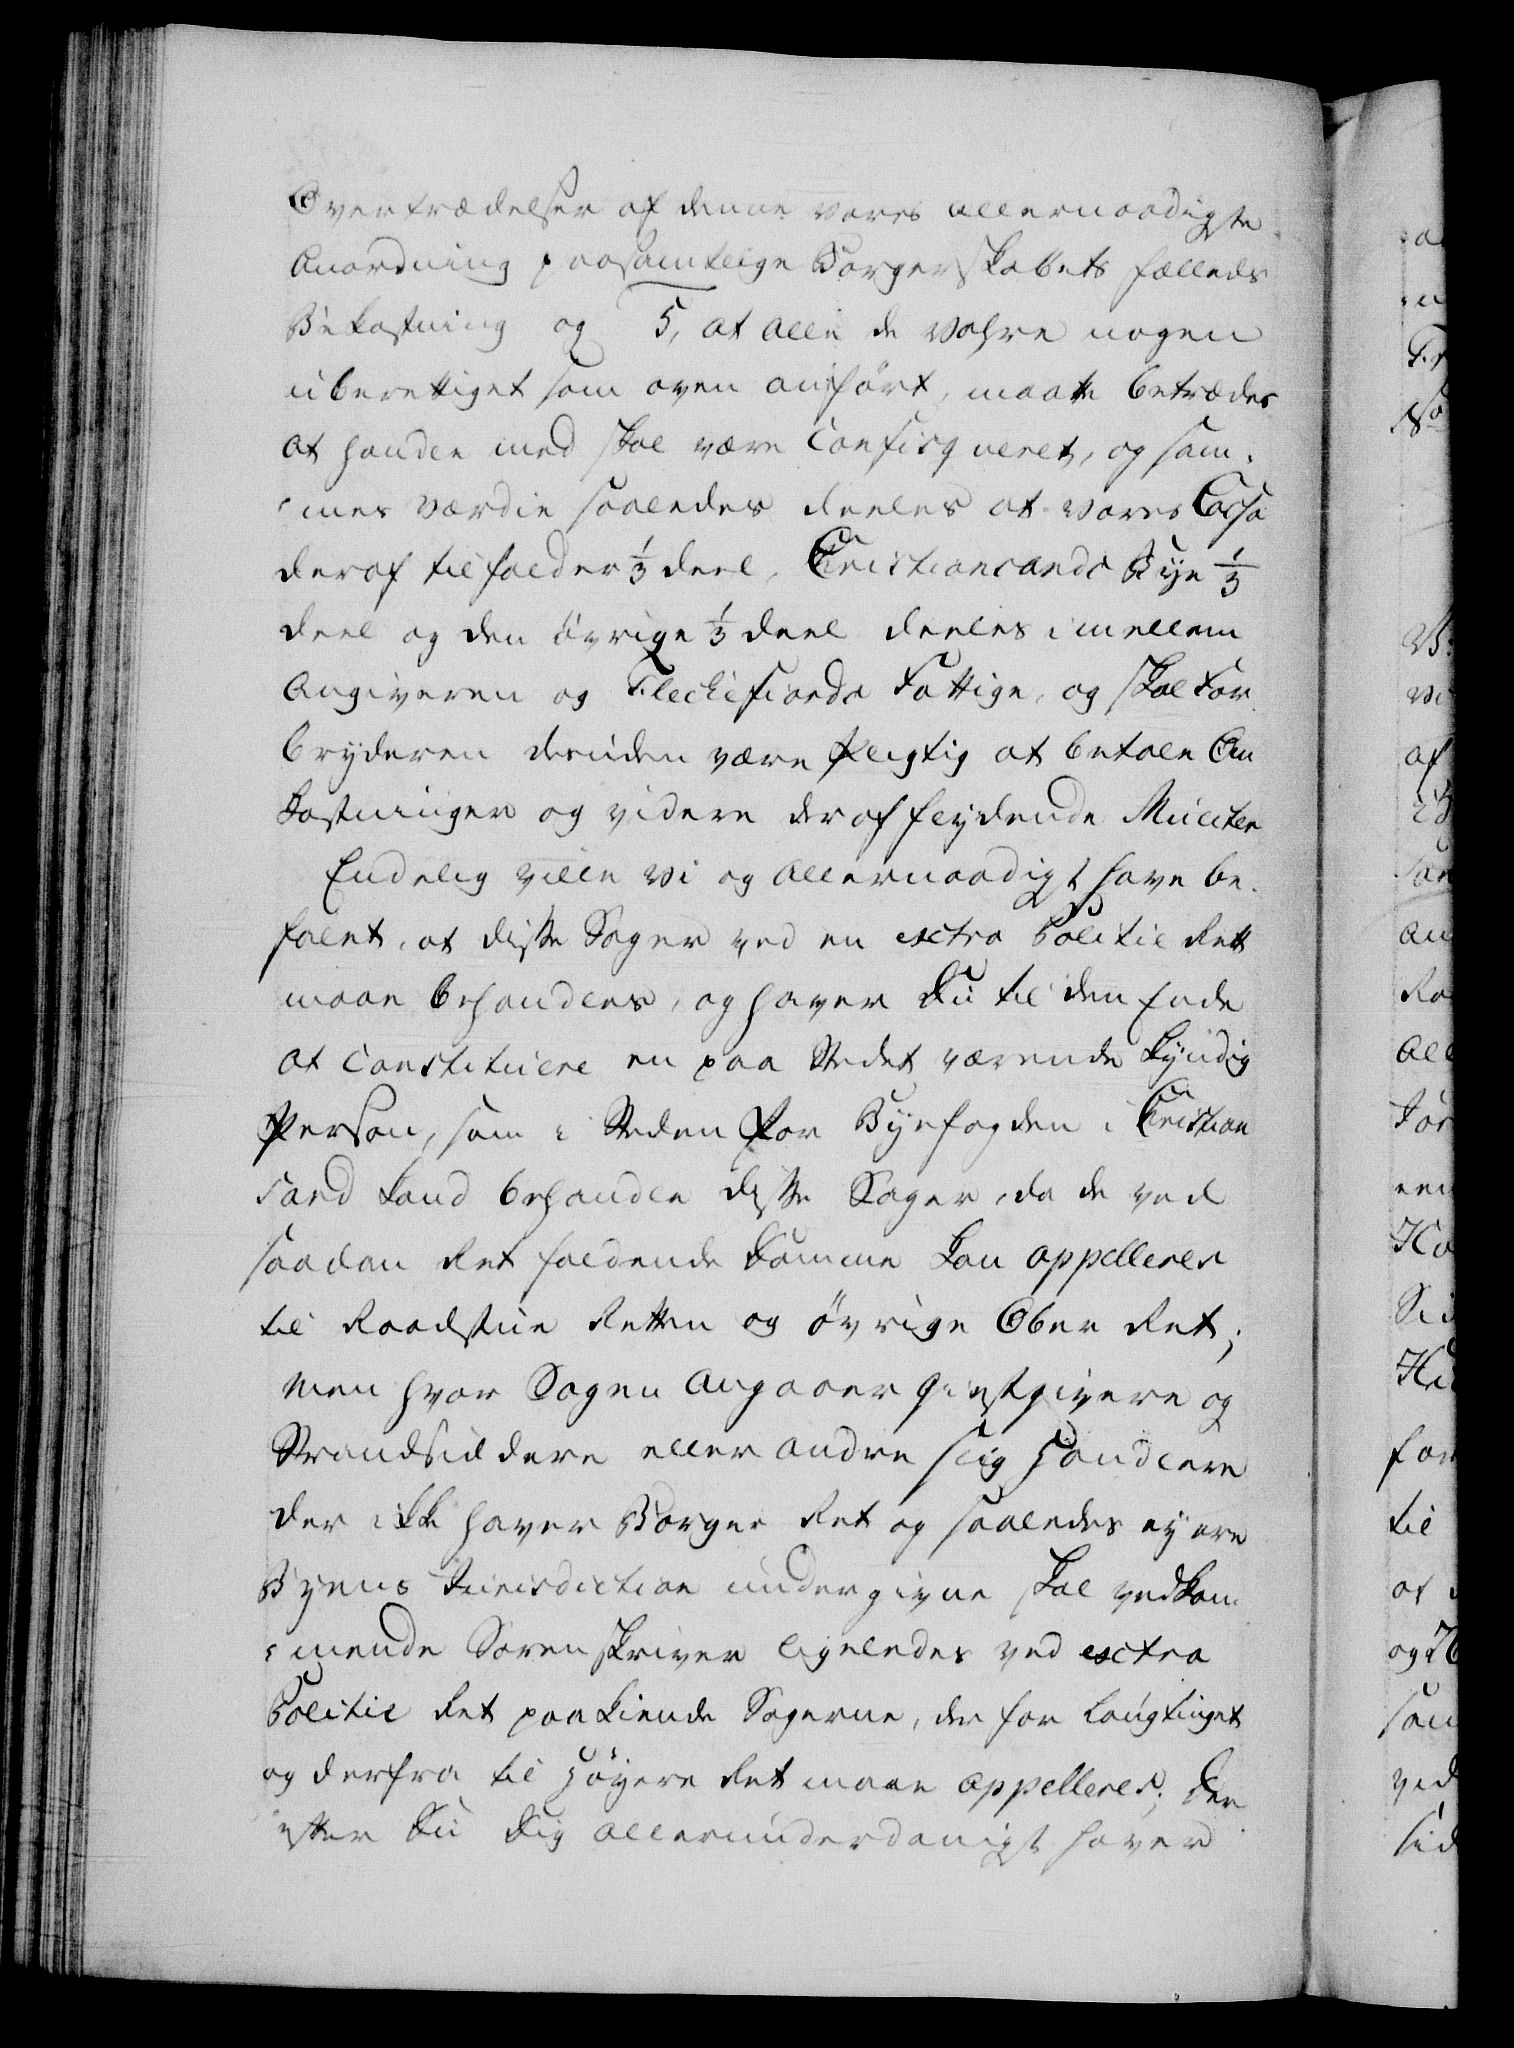 Overtrædelser af denne vores allernaadigste
Anordning paa samtlige Borgerskabets fælleds
Bekostning og 5, at alle de Vahre nogen
uberettiget som oven anført, maatte betrædes
at handle med skal være Confisqueret, og sam-
mes værdie saaledes deeles at vores Cassa
deraf tilfalder 1/3 deel, Christiansands Bye 1/3
deel og den øvrige 1/3 deel deeles imellem
Angiveren og Fleckefiords Fattige, og skal For
bryderen desuden være pligtig at betale Om
kostninger og videre deraf flydende Mulcter
Endelig ville vi og allernaadigst have be-
falet, at disse Sager ved en extra Politie Rett
maae behandles, og haver Du til den Ende
at Constituere en paa Stedet værende kyndig
Person, som i Steden for Byefogden i Christian
sand kand behandle disse Sager, da de ved
saadan Ret faldende Domme kan appelleres
til Raadstue Retten og øvrige Ober Ret;
Men hvor Sagen angaaer giæstgivere og
Strandsiddere eller andre slig Handlere
der ikke haver Borger Ret og saaledes ey ere
Byens Jurisdiction undergivne skal vedkom-
mende Sorenskriver ligeledes ved extra
Politie Ret paakiende Sagerne, der for Laugtinget
og derfra til høyere Ret maae appelleres; Der
efter Du Dig allerunderdanigst haver